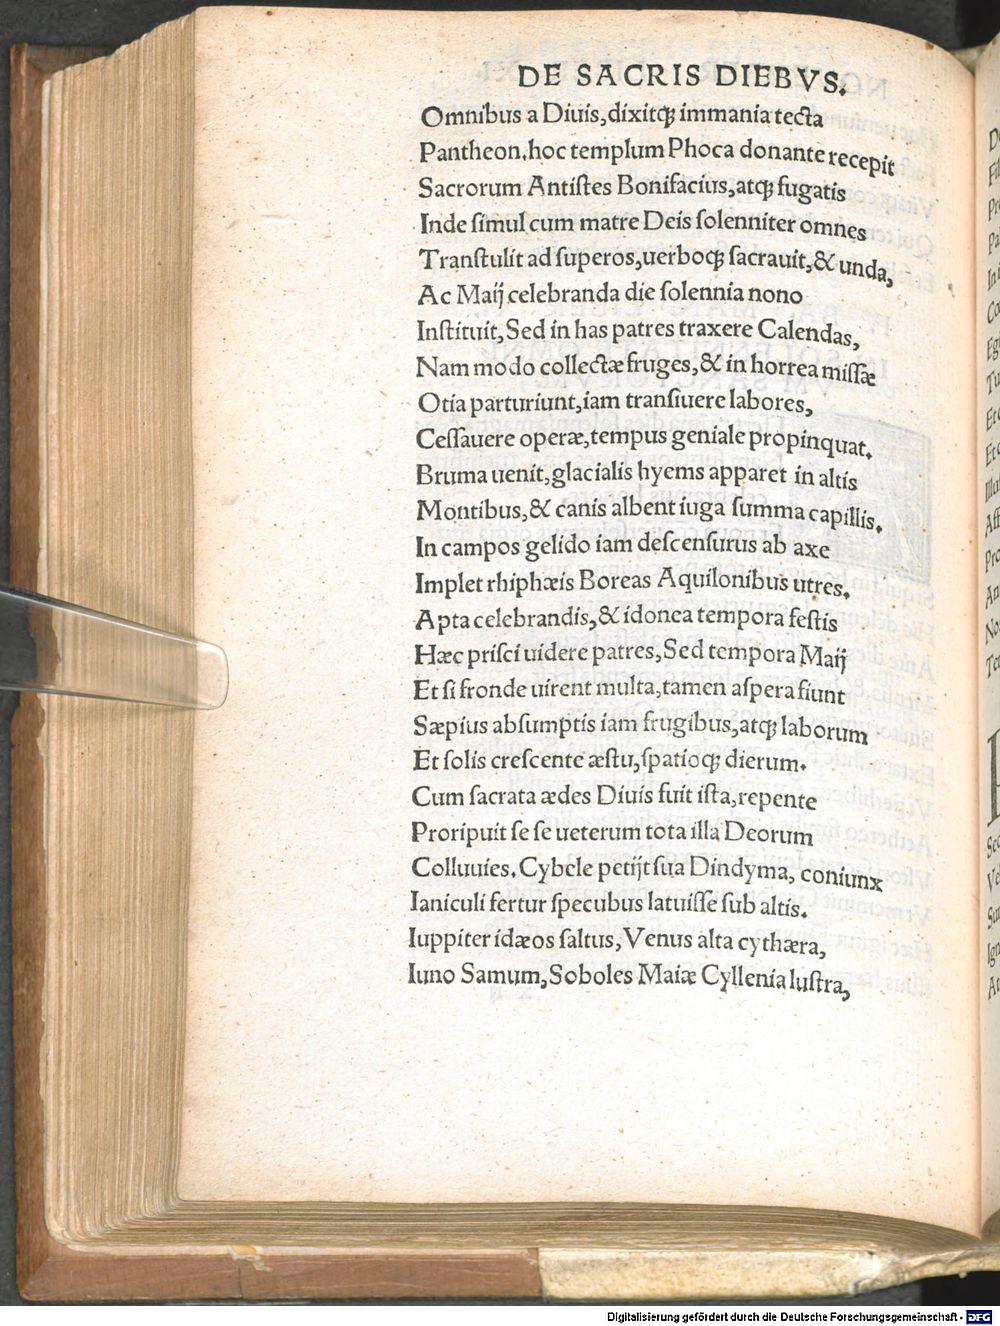 DE SACRIS DIEBVS.
Omnibus a Diuis, dixitqꝫ immania tecta
Pantheon. hoc templum Phoca donante recepit
Sacrorum Antiſtes Bonifacius, atqꝫ fugatis
Inde ſimul cum matre Deis ſolenniter omnes
Tranſtulit ad ſuperos, uerboqꝫ ſacrauit, & unda,
Ac Maij celebranda die ſolennia nono
Inſtituit, Sed in has patres traxere Calendas,
Nam modo collectæ fruges, & in horrea miſſæ
Otia parturiunt, iam tranſiuere labores,
Ceſſauere operæ, tempus geniale propinquat.
Bruma uenit, glacialis hyems apparet in altis
Montibus, & canis albent iuga ſumma capillis.
In campos gelido iam deſcenſurus ab axe
Implet rhiphæis Boreas Aquilonibus utres.
Apta celebrandis, & idonea tempora feſtis
Hæc priſci uidere patres, Sed tempora Maij
Et ſi fronde uirent multa, tamen aſpera fiunt
Sæpius abſumptis iam frugibus, atqꝫ laborum
Et ſolis creſcente æſtu, ſpatioqꝫ dierum.
Cum ſacrata ædes Diuis fuit iſta, repente
Proripuit ſe ſe ueterum tota illa Deorum
Colluuies. Cybele petijt ſua Dindyma, coniunx
Ianiculi fertur ſpecubus latuiſſe ſub altis.
Iuppiter idæos ſaltus, Venus alta cythæra,
Iuno Samum, Soboles Maiæ Cyllenia luſtra,
Digitalisierung gefördert durch die Deutsche Forschungsgemeinschaft - DFG